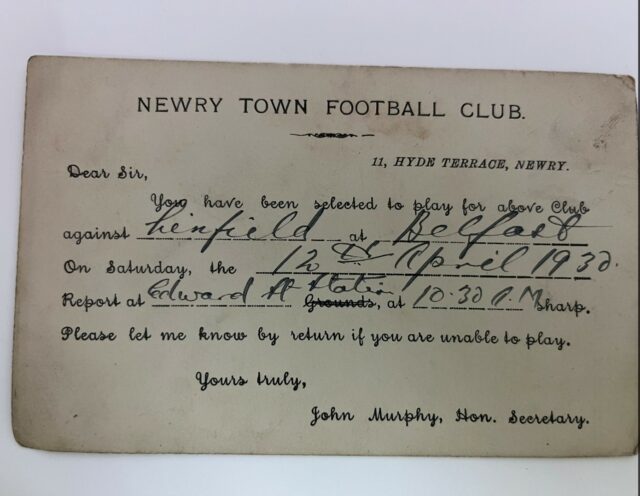 NEWRY TOWN FOOTBALL CLUB.
11, HYDE TERRACE, NEWRY.
Dear Sir,
You have been selected to play for above Club
against Linfield at Belfast
On Saturday, the 12th April 1930.
Report at Edward St Station Grounds, at 10.30 A.M Sharp.
Please let me know by return if you are unable to play.
Yours truly,
John Murphy, Hon. Secretary.